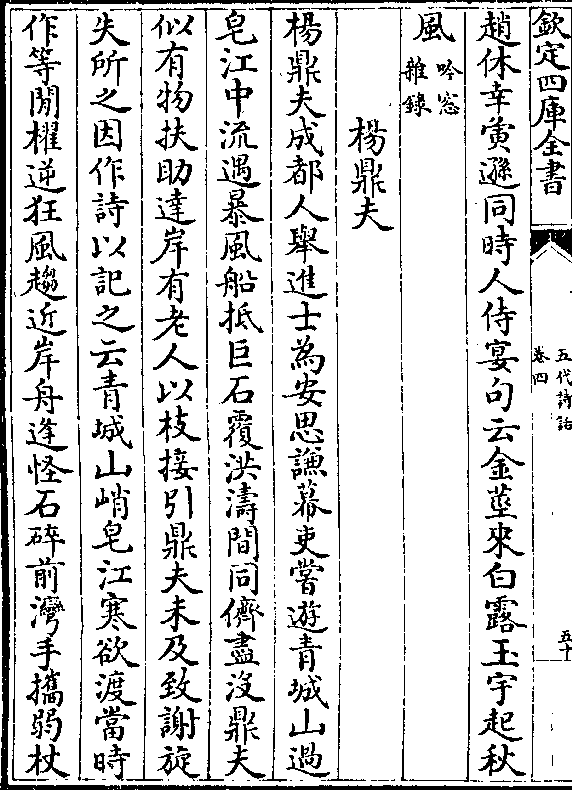 欽定四庫全書
五代詩話
卷四
五十
趙休幸夤遜同時人侍宴句云金莖來白露玉宇起秋
風吟窓
雜錄
楊鼎夫
楊鼎夫成都人舉進士為安思謙幕吏嘗遊青城山過
皂江中流遇暴風船抵巨石覆洪濤間同儕盡沒鼎夫
似有物扶助達岸有老人以枝接引鼎夫未及致謝旋
失所之因作詩以記之云青城山峭皂江寒欲渡當時
作等閒櫂逆狂風趨近岸舟逢怪石碎前灣手攜弱杖